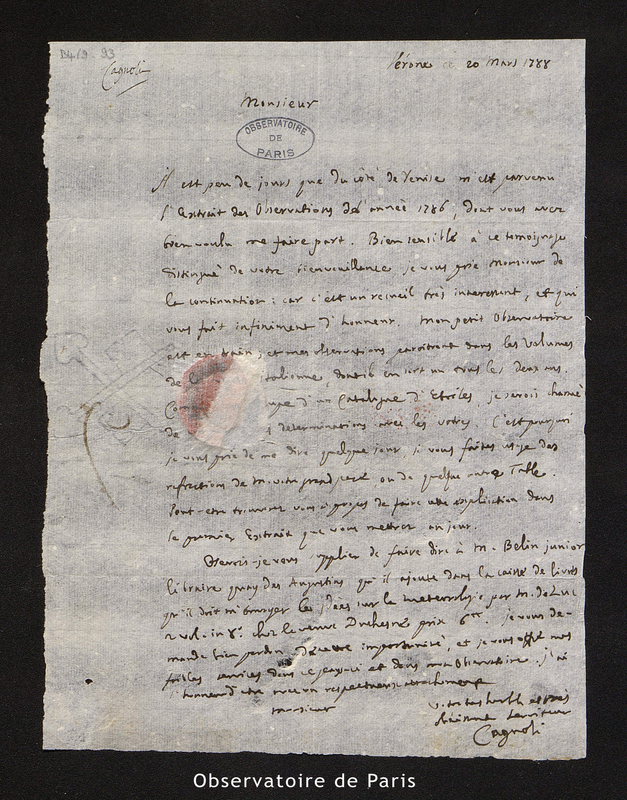 D4/9-93
Cagnoli
Vérone ce 20 Mars 1788
Monsieur
OBSERVATOIRE
DE
PARIS
Il est peu de jours que du côté de Venise m'est parvenu
l'Extrait des Observations de l'année 1786, dont vous avez
bien voulu me faire part. Bien sensible à ce temoignage
distingué de votre bienveillance je vous prie Monsieur de
la continuation: car c'est un recueil très interessant, et qui
vous fait infiniment d'honneur. Mon petit Observatoire
est en train, et mes observations paroitront dans les Volumes
de la italienne, dont il en sort un tous les deux ans.
d'un Catalogue d'Etoiles, je serois charmé
de determinations avec les votres. C'est pourquoi
je vous prie de me dire quelque jour si vous faites usage des
refractions de M. votre grand pere ou de quelque autre Table.
Peut-etre trouverez vous à propos de faire cette explication dans
le premier Extrait que vous mettrez au jour.
Oserois-je vous supplier de faire dire à M. Belin junior
libraire quay des Augustins qu'il ajoute dans la caisse de livres
qu'il doit m'envoyer les Idées sur la meteorologie par M. de Luc
2 vol. in 8°. chez la veuve Duchesne prix 6 . je vous de-
mande bien pardon de cette importunité, et je vous offre mes
foibles services dans ce pays-ci et dans mon Observatoire. J'ai
l'honneur d'etre avec un respectueux attachement
Monsieur
V. très humble et très
obeissant serviteur
Cagnoli
Observatoire de Paris